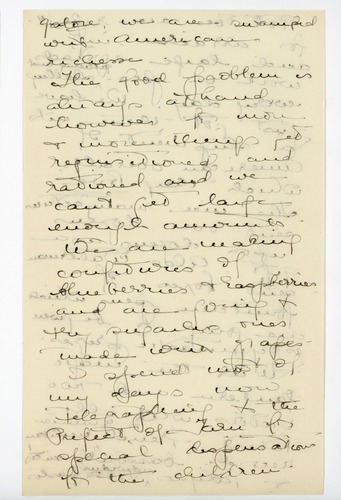 galore, we are swamped
with American
richesse
The food problem is
always at hand
however for more
& more things get
requisitioned and
rationed and we
can't get large
enough amounts
We are making
confitures of
blueberries & raspberries
and are going to
try sugarless ones
made with grapes.
I spend most of
my days now
telegraphing to the
Prefect of Tarn for
special dispensations
for the children